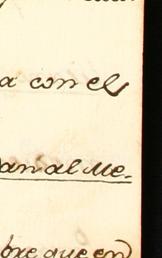 a con el
an al Me.
bre que en